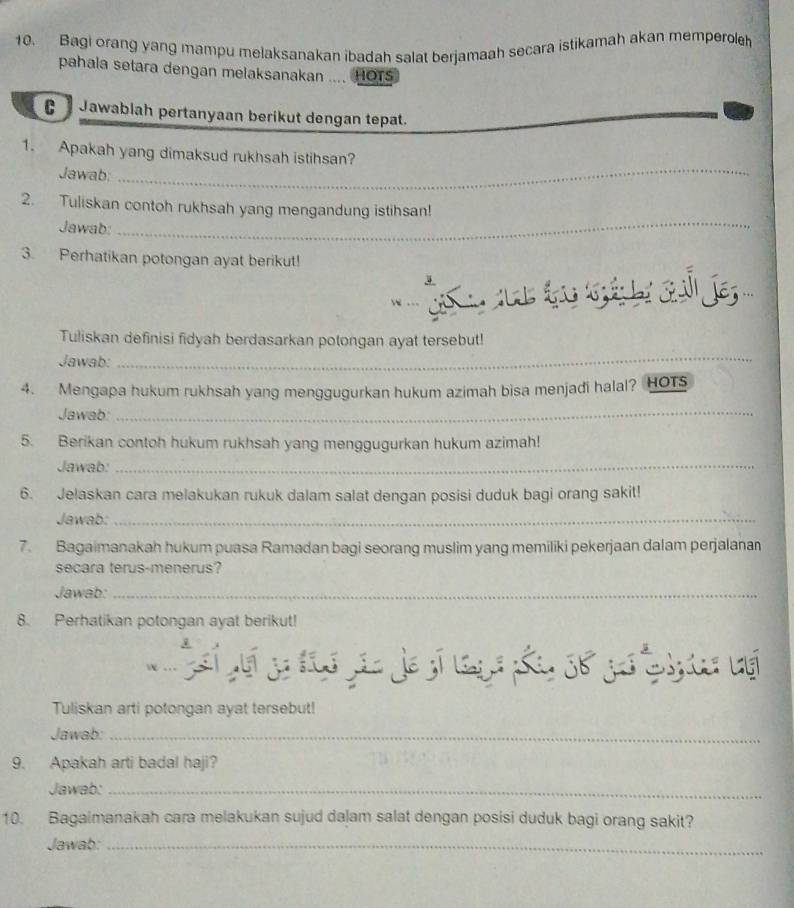 10. Bagi orang yang mampu melaksanakan ibadah salat berjamaah secara istikamah akan memperoleh
pahala setara dengan melaksanakan .... HOTS
C Jawablah pertanyaan berikut dengan tepat.
1. Apakah yang dimaksud rukhsah istihsan?
Jawab:
2. Tuliskan contoh rukhsah yang mengandung istihsan!
Jawab:
3. Perhatikan potongan ayat berikut!
... وَعَلَى الَّذِيْنَ يُطِيْقُوْنَهٗ فِدْيَةٌ طَعَامُ مِسْكِيْنٍۗ ...
Tuliskan definisi fidyah berdasarkan potongan ayat tersebut!
Jawab:
4. Mengapa hukum rukhsah yang menggugurkan hukum azimah bisa menjadi halal? HOTS
Jawab:
5. Berikan contoh hukum rukhsah yang menggugurkan hukum azimah!
Jawab:
6. Jelaskan cara melakukan rukuk dalam salat dengan posisi duduk bagi orang sakit!
Jawab:
7. Bagaimanakah hukum puasa Ramadan bagi seorang muslim yang memiliki pekerjaan dalam perjalanan
secara terus-menerus?
Jawab:
8. Perhatikan potongan ayat berikut!
اَيَّامًا مَّعْدُوْدٰتٍۗ فَمَنْ كَانَ مِنْكُمْ مَّرِيْضًا اَوْ عَلٰى سَفَرٍ فَعِدَّةٌ مِّنْ اَيَّامٍ اُخَرَۗ ...
Tuliskan arti potongan ayat tersebut!
Jawab:
9. Apakah arti badal haji?
Jawab:
10. Bagaimanakah cara melakukan sujud dalam salat dengan posisi duduk bagi orang sakit?
Jawab: